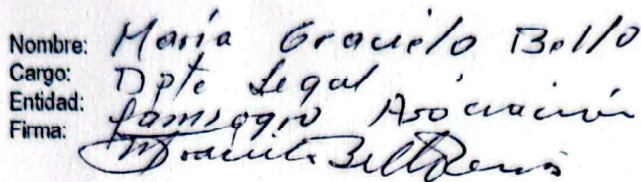 Nombre: María Graciela Bello
Cargo: Dpto Legal
Entidad: Asociación
Firma: